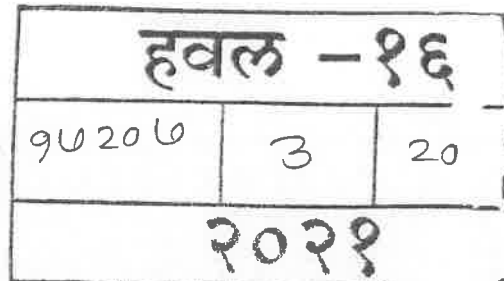 हवल - १६
१७२०७ ३ २०
२०२१